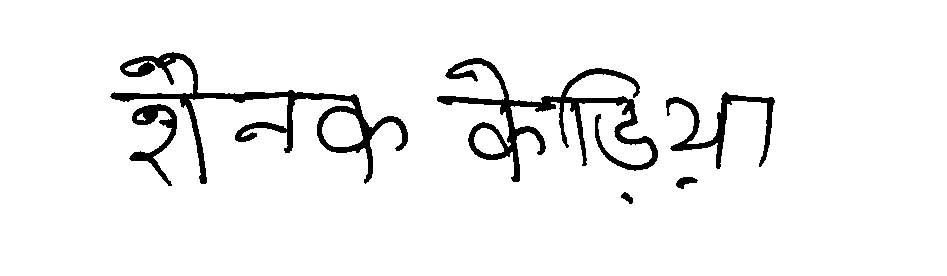 शैनक केड़िय़ा